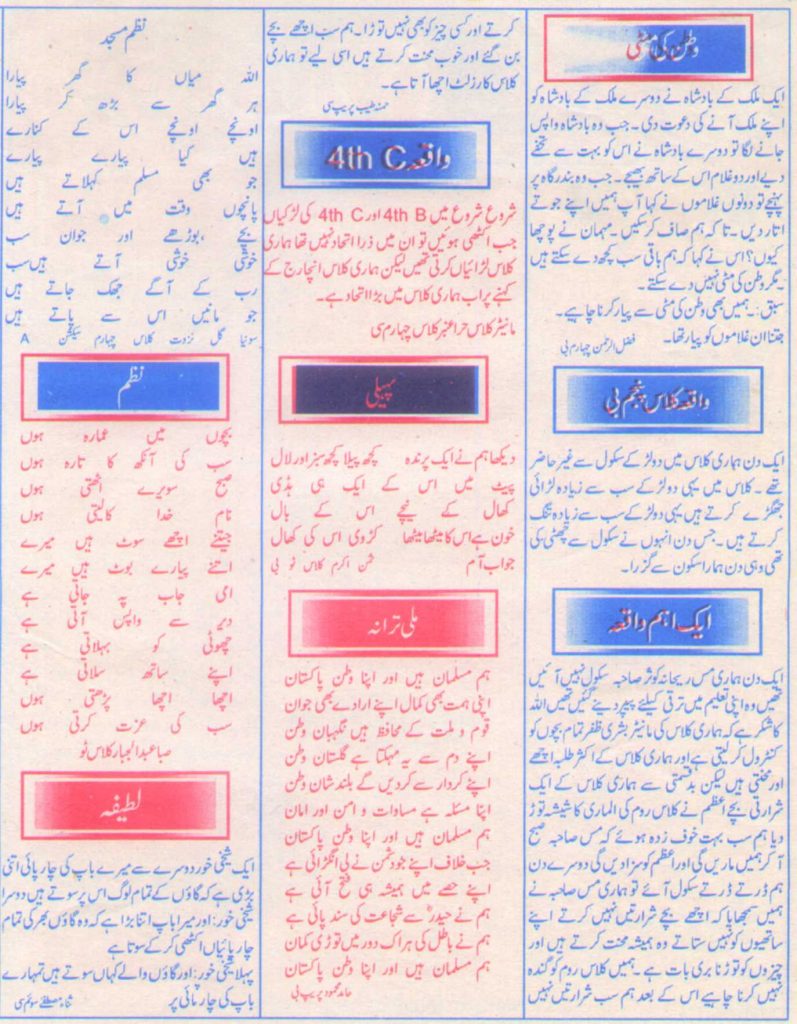 وطن کی مٹی
ایک ملک کے بادشاہ نے دوسرے ملک کے بادشاہ کو
اپنے ملک آنے کی دعوت دی ۔ جب وہ بادشاہ واپس
جانے لگا تو دوسرے بادشاہ نے اس کو بہت سے تحفے
دیے اور دو غلام اس کے ساتھ بھیجے ۔ جب وہ بندرگاہ پر
پہنچے تو دونوں غلاموں نے کہا آپ ہمیں اپنے جوتے
اتار دیں ۔ تا کہ ہم صاف کرسکیں ۔ مہمان نے پوچھا
کیوں؟ اس نے کہا کہ ہم باقی سب کچھ دے سکتے ہیں
۔ مگر وطن کی مٹی نہیں دے سکتے ۔
سبق :۔ ہمیں بھی وطن کی مٹی سے پیار کرنا چاہیے ۔
جتنا ان غلاموں کو پیار تھا ۔
فضل الرحمن چہارم بی
واقعہ کلاس پنجم بی
ایک دن ہماری کلاس میں دو لڑکے سکول سے غیر حاضر
تھے ۔ کلاس میں یہی دو لڑکے سب سے زیادہ لڑائی
جھگڑے کرتے ہیں یہی دو لڑکے سب سے زیادہ تنگ
کرتے ہیں ۔ جس دن انہوں نے سکول سے چھٹی کی
تھی وہی دن ہمارا سکون سے گزرا ۔
ایک اہم واقعہ
ایک دن ہماری مس ریحانہ کوثر صاحبہ سکول نہیں آئیں
تھیں وہ اپنی تعلیم میں ترقی کیلئے پیپر دینے گئیں تھیں اللہ
کا شکر ہے کہ ہماری کلاس کی مانیٹر بشری ظفر تمام بچوں کو
کنٹرول کر لیتی ہے اور ہماری کلاس کے اکثر طلبہ اچھے
اور محنتی ہیں لیکن بدقسمتی سے ہماری کلاس کے ایک
شرارتی بچے اعظم نے کلاس روم کی الماری کا شیشہ توڑ
دیا ہم سب بہت خوف زدہ ہوئے کہ مس صاحبہ صبح
آ کر ہمیں ماریں گی اور اعظم کو سزا دیں گی دوسرے دن
ہم ڈرتے ڈرتے سکول آئے تو ہماری مس صاحبہ نے
ہمیں سمجھایا کہ اچھے بچے شرارتیں نہیں کرتے اپنے
ساتھیوں کو نہیں ستاتے وہ ہمیشہ محنت کرتے ہیں اور
چیزوں کو توڑنا بری بات ہے ۔ ہمیں کلاس روم کو گندہ
نہیں کرنا چاہیے اس کے بعد ہم سب شرارتیں نہیں
کرتے اور کسی چیز کو بھی نہیں توڑا ۔ ہم سب اچھے بچے
بن گئے اور خوب محنت کرتے ہیں اسی لیے تو ہماری
کلاس کا رزلٹ اچھا آتا ہے ۔
حمنہ طیب پریپ سی
واقعہ 4th C
شروع شروع میں 4th B اور 4th C کی لڑکیاں
جب اکٹھی ہوئیں تو ان میں ذرا اتحاد نہیں تھا ہماری
کلاس لڑائیاں کرتی تھیں لیکن ہماری کلاس انچارج کے
کہنے پر اب ہماری کلاس میں بڑا اتحاد ہے ۔
مانیٹر کلاس حرا عنبر کلاس چہارم سی
پہیلی
دیکھا ہم نے ایک پرندہ کچھ پیلا کچھ سبز اور لال
پیٹ میں اس کے ایک ہی ہڈی
کھال کے نیچے اس کے بال
خون ہے اس کا میٹھا میٹھا کڑوی اس کی کھال
جواب آم
ثمن اکرم کلاس ٹو بی
ملی ترانہ
ہم مسلمان ہیں اور اپنا وطن پاکستان
اپنی ہمت بھی کمال اپنے ارادے بھی جوان
قوم و ملت کے محافظ ہیں نگہبان وطن
اپنے دم سے یہ مہکتا ہے گلستان وطن
اپنے کردار سے کر دیں گے بلند شان وطن
اپنا مسئلہ ہے مساوات و امن اور امان
ہم مسلمان ہیں اور اپنا وطن پاکستان
جب خلاف اپنے جو دشمن نے لی انگڑائی ہے
اپنے حصے میں ہمیشہ ہی فتح آئی ہے
ہم نے حیدرؓ سے شجاعت کی سند پائی ہے
ہم نے باطل کی ہر اک دور میں توڑی کمان
ہم مسلمان ہیں اور اپنا وطن پاکستان
حامد محمود پریپ بی
نظم مسجد
اللہ میاں کا گھر پیارا
ہر گھر سے بڑھ کر پیارا
اونچے اونچے اس کے کنارے
ہیں کیا پیارے پیارے
جو بھی مسلم کہلاتے ہیں
پانچوں وقت میں آتے ہیں
بچے ، بوڑھے اور جوان سب
خوشی خوشی آتے ہیں سب
رب کے آگے جھک جاتے ہیں
جو مانیں اس سے پاتے ہیں
سونیا گل نزہت کلاس چہارم سیکشن A
نظم
بچوں میں عمارہ ہوں
سب کی آنکھ کا تارہ ہوں
صبح سویرے اٹھتی ہوں
نام خدا کا لیتی ہوں
جتنے اچھے سوٹ ہیں میرے
اتنے پیارے بوٹ ہیں میرے
امی جاب پہ جاتی ہے
دیر سے واپس آتی ہے
چھوٹی کو بہلاتی ہے
اپنے ساتھ سلاتی ہے
اچھا اچھا پڑھتی ہوں
سب کی عزت کرتی ہوں
صبا عبدالجبار کلاس ٹو
لطیفہ
ایک شیخی خور دوسرے سے میرے باپ کی چارپائی اتنی
بڑی ہے کہ گاؤں کے تمام لوگ اس پر سوتے ہیں دوسرا
شیخی خور: اور میرا باپ اتنا بڑا ہے کہ وہ گاؤں بھر کی تمام
چارپائیاں اکٹھی کر کے سوتا ہے
پہلا شیخی خور: اور گاؤں والے کہاں سوتے ہیں تمہارے
باپ کی چارپائی پر
ثناء مصطفےٰ سوئم سی